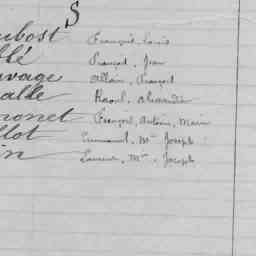 S
ubost François Louis
llé François, Jean
uvage Allain, François
alle Raoul, Alexandre
nonet François, Antoine, Marie
llot Emmanuel, Mie Joseph
in Laurent, Mie Joseph